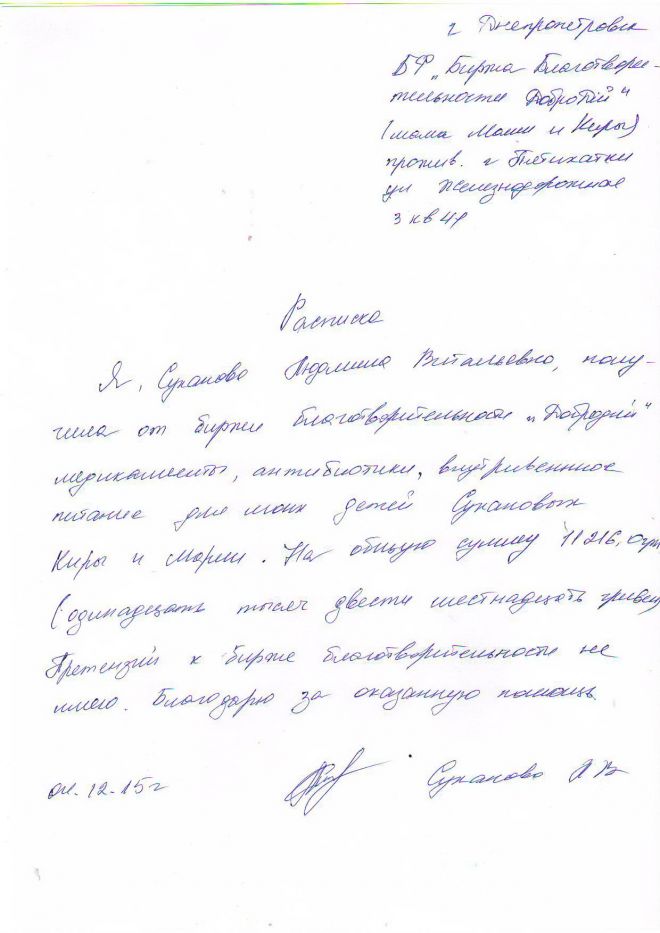 г Днепропетровск
БФ „Биржа Благотвори-
тельности ДоброДий"
(мама Маши и Киры)
прожив. г Пятихатки
ул Железнодорожная
3 кв 49
Расписка
Я, Суханова Людмила Витальевна, полу-
чила от биржи благотворительности „Добродий"
медикаменты, антибиотики, внутривенное
питание для моих детей Сухановых
Киры и Марии. На общую сумму 11216,0грн
(одинадцать тысяч двести шестнадцать гривен)
Претензий к бирже благотворительности не
имею. Благодарю за оказанную помощь.
04.12.15г Суханова Л В